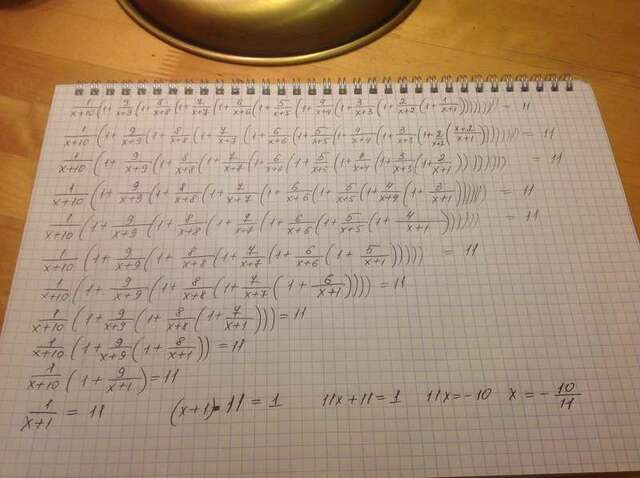 1/(x+10) (1 + 9/(x+9) (1 + 8/(x+8) (1 + 7/(x+7) (1 + 6/(x+6) (1 + 5/(x+5) (1 + 4/(x+4) (1 + 3/(x+3) (1 + 2/(x+2) (1 + 1/(x+1)))))))))) = 11
1/(x+10) (1 + 9/(x+9) (1 + 8/(x+8) (1 + 7/(x+7) (1 + 6/(x+6) (1 + 5/(x+5) (1 + 4/(x+4) (1 + 3/(x+3) (1 + 2/(x+2) (x+2)/(x+1))))))))) = 11
1/(x+10) (1 + 9/(x+9) (1 + 8/(x+8) (1 + 7/(x+7) (1 + 6/(x+6) (1 + 5/(x+5) (1 + 4/(x+4) (1 + 3/(x+3) (1 + 2/(x+1)))))))))) = 11
1/(x+10) (1 + 9/(x+9) (1 + 8/(x+8) (1 + 7/(x+7) (1 + 6/(x+6) (1 + 5/(x+5) (1 + 4/(x+4) (1 + 3/(x+1)))))))) = 11
1/(x+10) (1 + 9/(x+9) (1 + 8/(x+8) (1 + 7/(x+7) (1 + 6/(x+6) (1 + 5/(x+5) (1 + 4/(x+1)))))))) = 11
1/(x+10) (1 + 9/(x+9) (1 + 8/(x+8) (1 + 7/(x+7) (1 + 6/(x+6) (1 + 5/(x+1)))))) = 11
1/(x+10) (1 + 9/(x+9) (1 + 8/(x+8) (1 + 7/(x+7) (1 + 6/(x+1))))) = 11
1/(x+10) (1 + 9/(x+9) (1 + 8/(x+8) (1 + 7/(x+1)))) = 11
1/(x+10) (1 + 9/(x+9) (1 + 8/(x+1))) = 11
1/(x+10) (1 + 9/(x+1)) = 11
1/(x+1) = 11 (x+1)·11 = 1 11x+11 = 1 11x = -10 x = -10/11